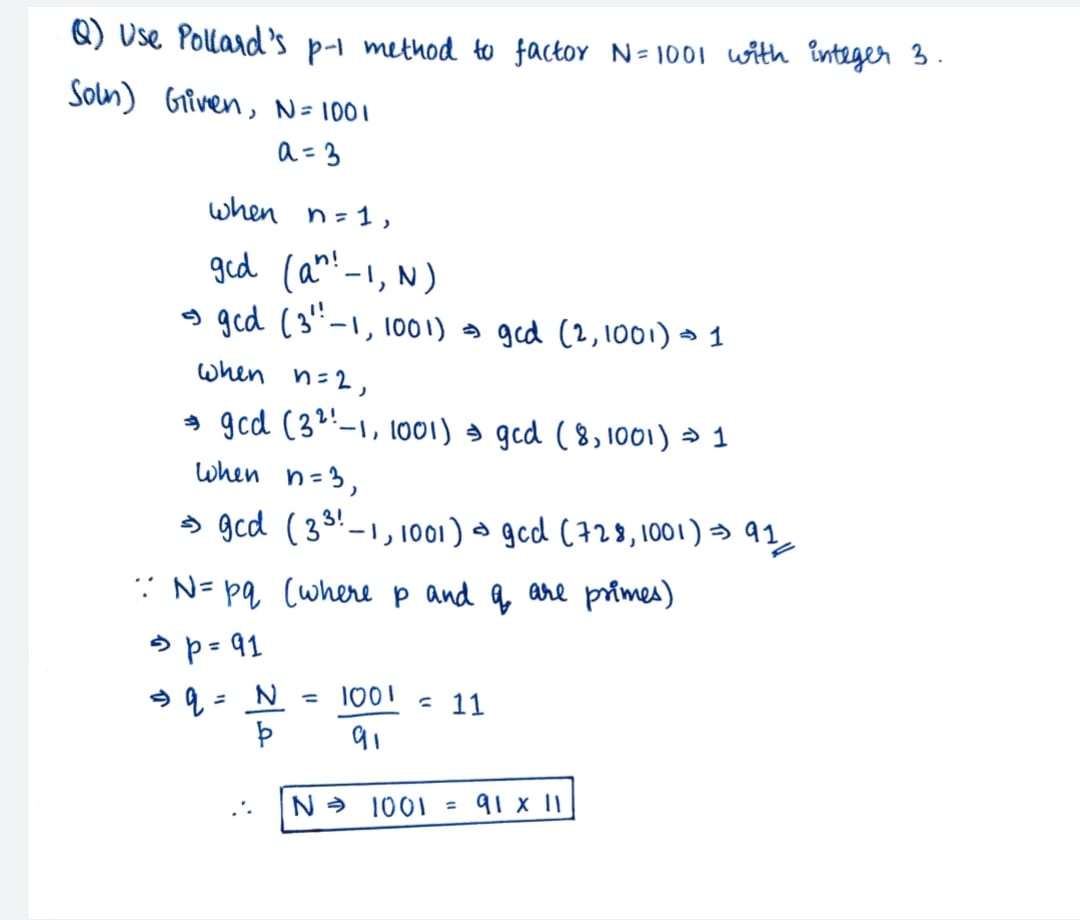 Q) Use Pollard's p-1 method to factor N=1001 with integer 3.
Soln) Given, N=1001
a=3
when n=1,
gcd (a^n! -1, N)
⇒ gcd (3^1! -1, 1001) ⇒ gcd (2,1001) ⇒ 1
when n=2,
⇒ gcd (3^2! -1, 1001) ⇒ gcd (8,1001) ⇒ 1
when n=3,
⇒ gcd (3^3! -1, 1001) ⇒ gcd (728,1001) ⇒ 91
∵ N=pq (where p and q are primes)
⇒ p=91
⇒ q = N/p = 1001/91 = 11
∴ N ⇒ 1001 = 91 x 11